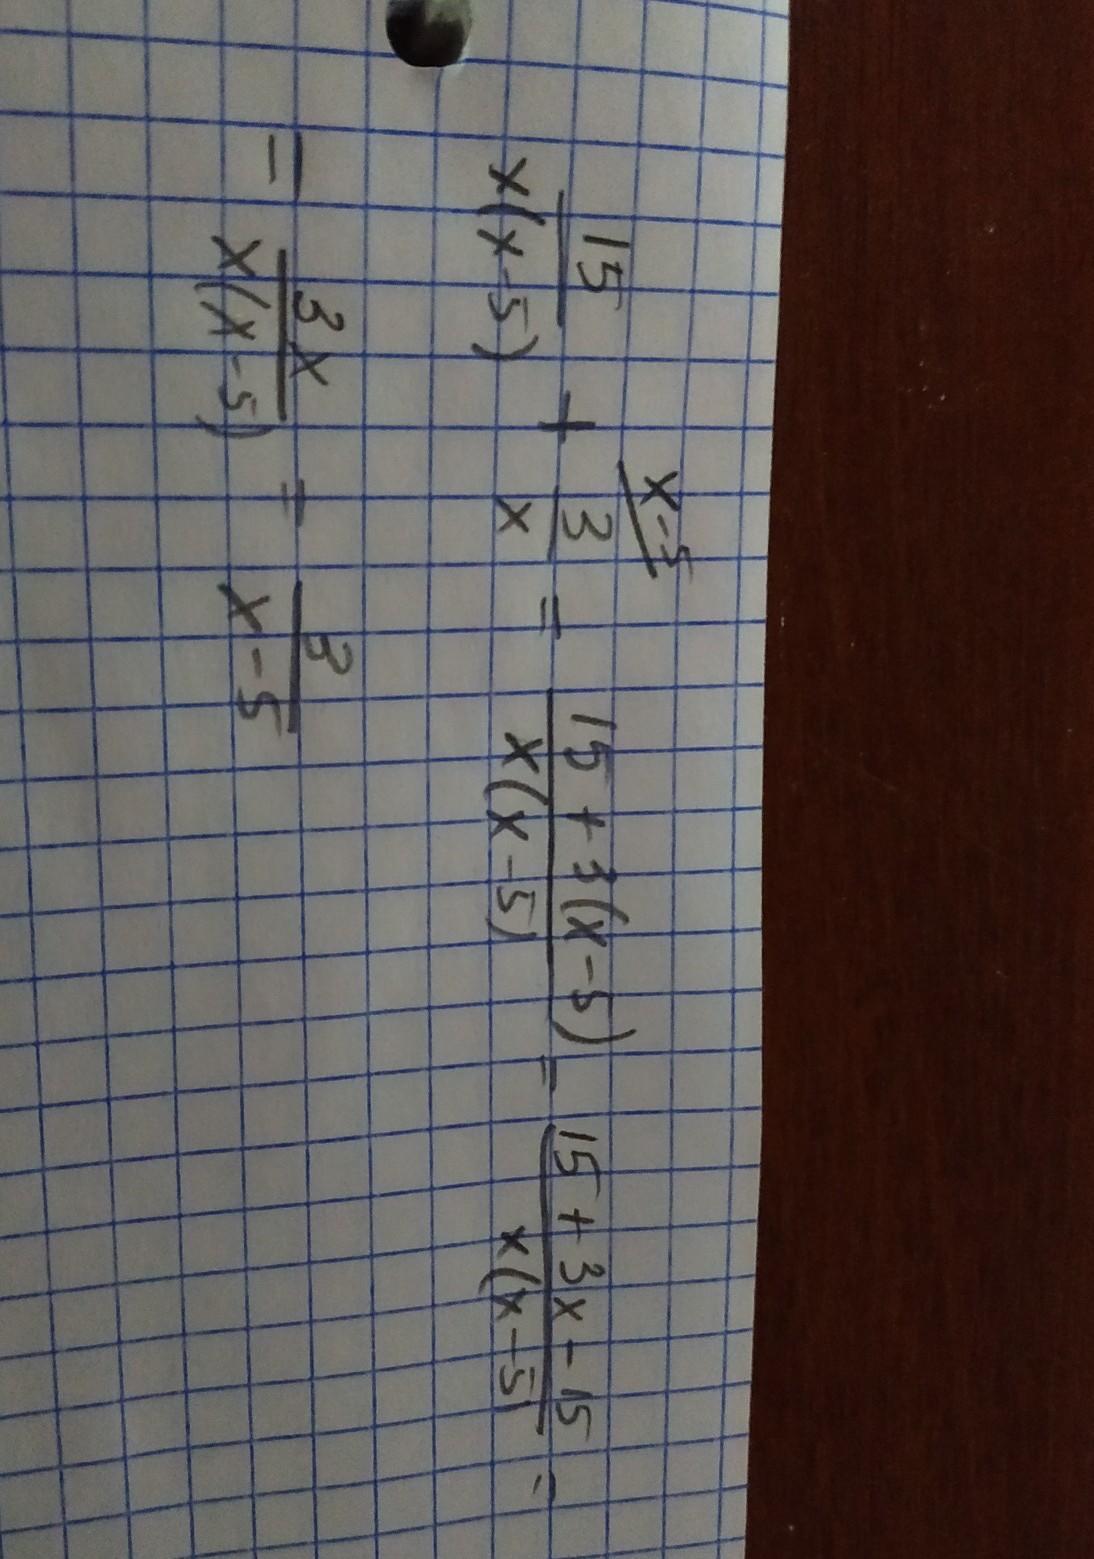 15/x(x-5) + 3/x ^x-5 = 15 + 3(x-5)/x(x-5) = 15 + 3x - 15/x(x-5) =
= 3x/x(x-5) = 3/x-5